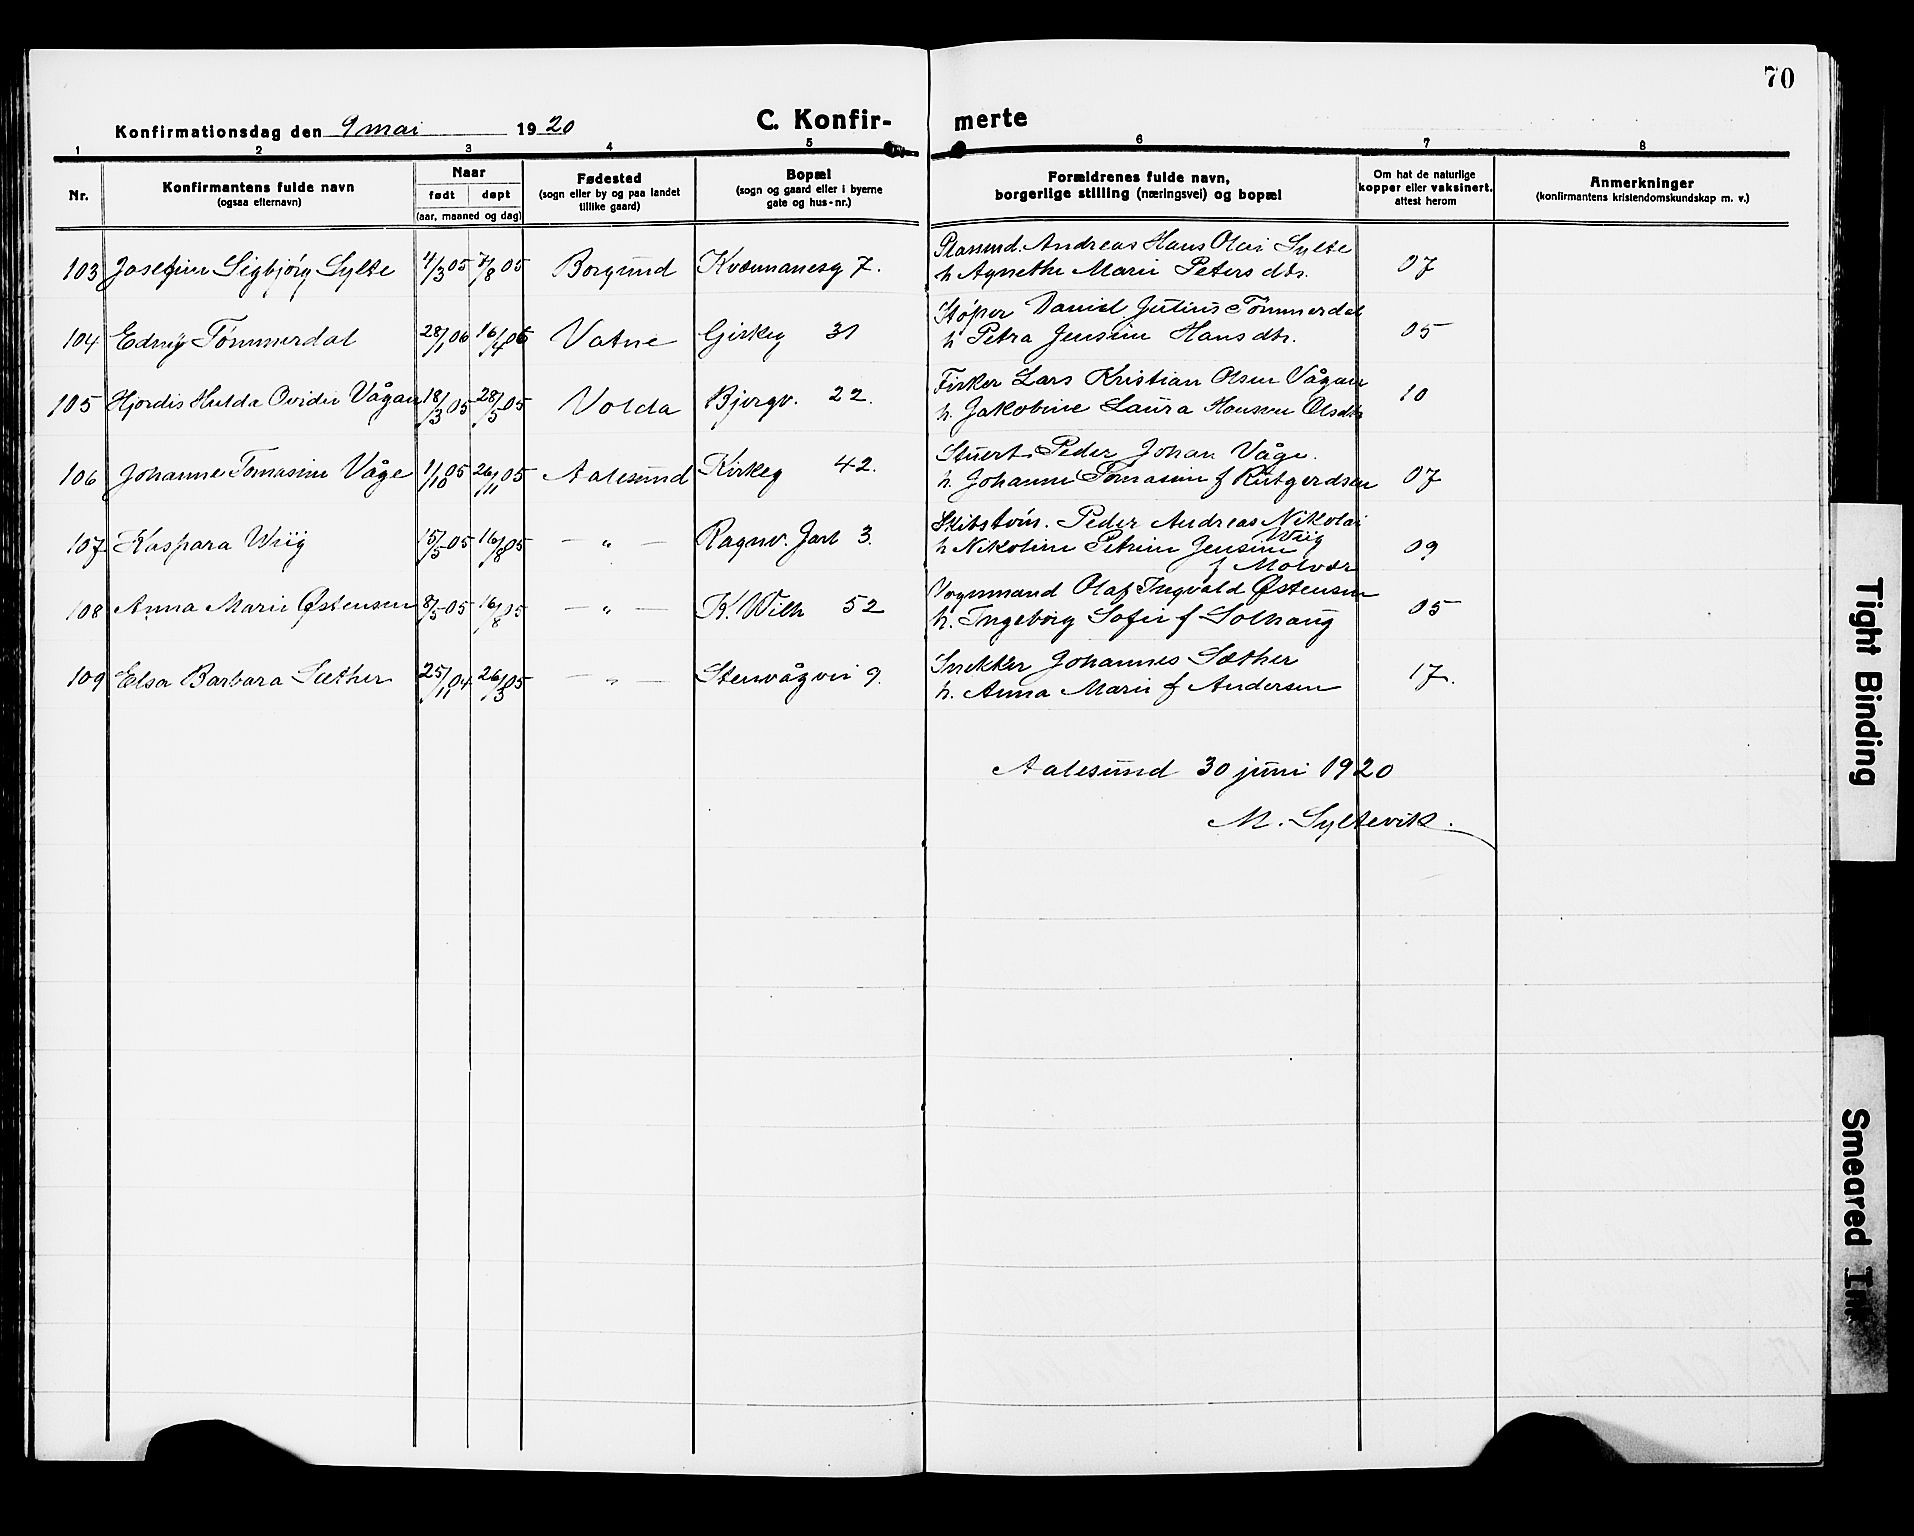 70
Konfirmationsdag den 9 mai 1920 C. Konfir- merte
1 2 3 4 5 6 7 8
Nr. Konfirmantens fulde navn (ogsaa efternavn) Naar født døpt (aar, maaned og dag) Fødested (sogn eller by og paa landet tillike gaard) Bopæl (sogn og gaard eller i byerne gate og hus-nr.) Forældrenes fulde navn, borgerlige stilling (næringsvei) og bopæl Om hat de naturlige kopper eller vaksinert. attest herom Anmerkninger (konfirmantens kristendomskundskap m. v.)
Andreas Hans Olai Sylte
103 Josefine Sigbjórg Sylte 4/3 05 7/8 05 Borgund 7. h Agnethe Marie Petersdtr. 07
Støper Daniel Julius Tömmerdal
104 Edny Tömmerdal 28/1 06 16/4 06 Vatne Girkeg 31 h Petra Jensine Hansdtr. 05
Fisker Lars Kristian Olsen Vågan
105 Hjordis Hulda Ovidie Vågan 18/3 05 28/5 05 Volda Bjorgv. 22. h. Jakobine Laura Hansen Olsdtr 10
Stuert Peder Johan Våge.
106 Johanne Tomasine Våge 1/10 05 26/11 05 Aalesund Kirkeg 42. h. Johanne Tomasine f Rutgerdsen 07
Skibstóm. Peder Andreas Nikolai
Wiig
107 Kaspara Wiig 15/5 05 16/8 05 — „ — Ragnv. Jarl 3. h Nikoline Petrine Jensine 09
f Molvær
Vognmand Olaf Ingvald Østensen
108 Anna Marie Østensen 8/5 05 16/8 05 — „ — K. Wilh 52 h. Ingeborg Sofie f Solhaug 05
Snekker Johannes Sæther
109 Elsa Barbara Sæther 25/11 04 26/3 05 — „ — Stenvågvei 9. h. Anna Marie f Andersen 17.
Aalesund 30 juni 1920
M. Syltevik.
Tight Binding
Smeared Ink